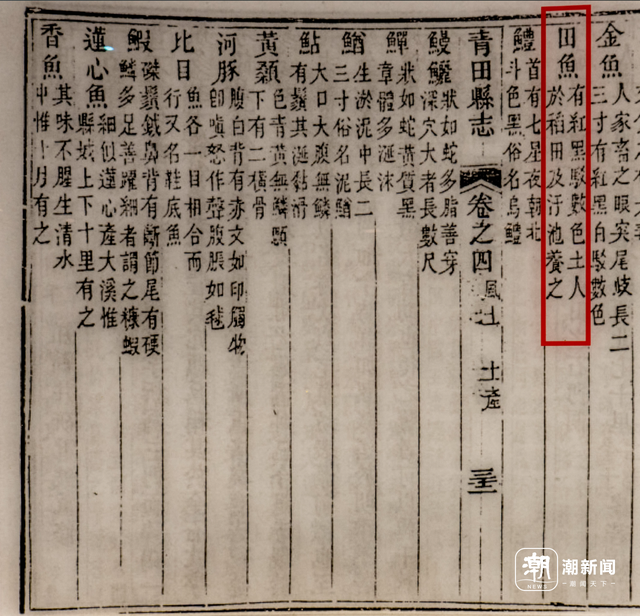 金魚
人家畜之眼突尾歧長二
三寸有紅黑白駁數色
田魚
有紅黑駁數色土人
於稻田及汙池養之
鱧
首有七星夜朝北
斗色黑俗名烏鱧
青田縣志 卷之四 風土 土產
鰻鱺
狀如蛇多脂善穿
深穴大者長數尺
鱓
狀如蛇黃質黑
章體多涎沫
鰌
生淤泥中長二
三寸俗名泥鰌
鮎
大口大腹無鱗
有鬚其涎黏滑
黃顙
色青黃無鱗顋
下有二橫骨
河豚
腹白背有赤文如印觸物
卽嗔怒作聲腹脹如毬
比目
魚各一目相合而
行又名鞋底魚
鰕
磔鬚鉞鼻背有斷節尾有硬
鱗多足善躍細者謂之糠蝦
蓮心魚
細似蓮心產大溪惟
縣城上下十里有之
香魚
其味不腥生清水
中惟十月有之
潮
NEWS
潮新闻
潮闻天下